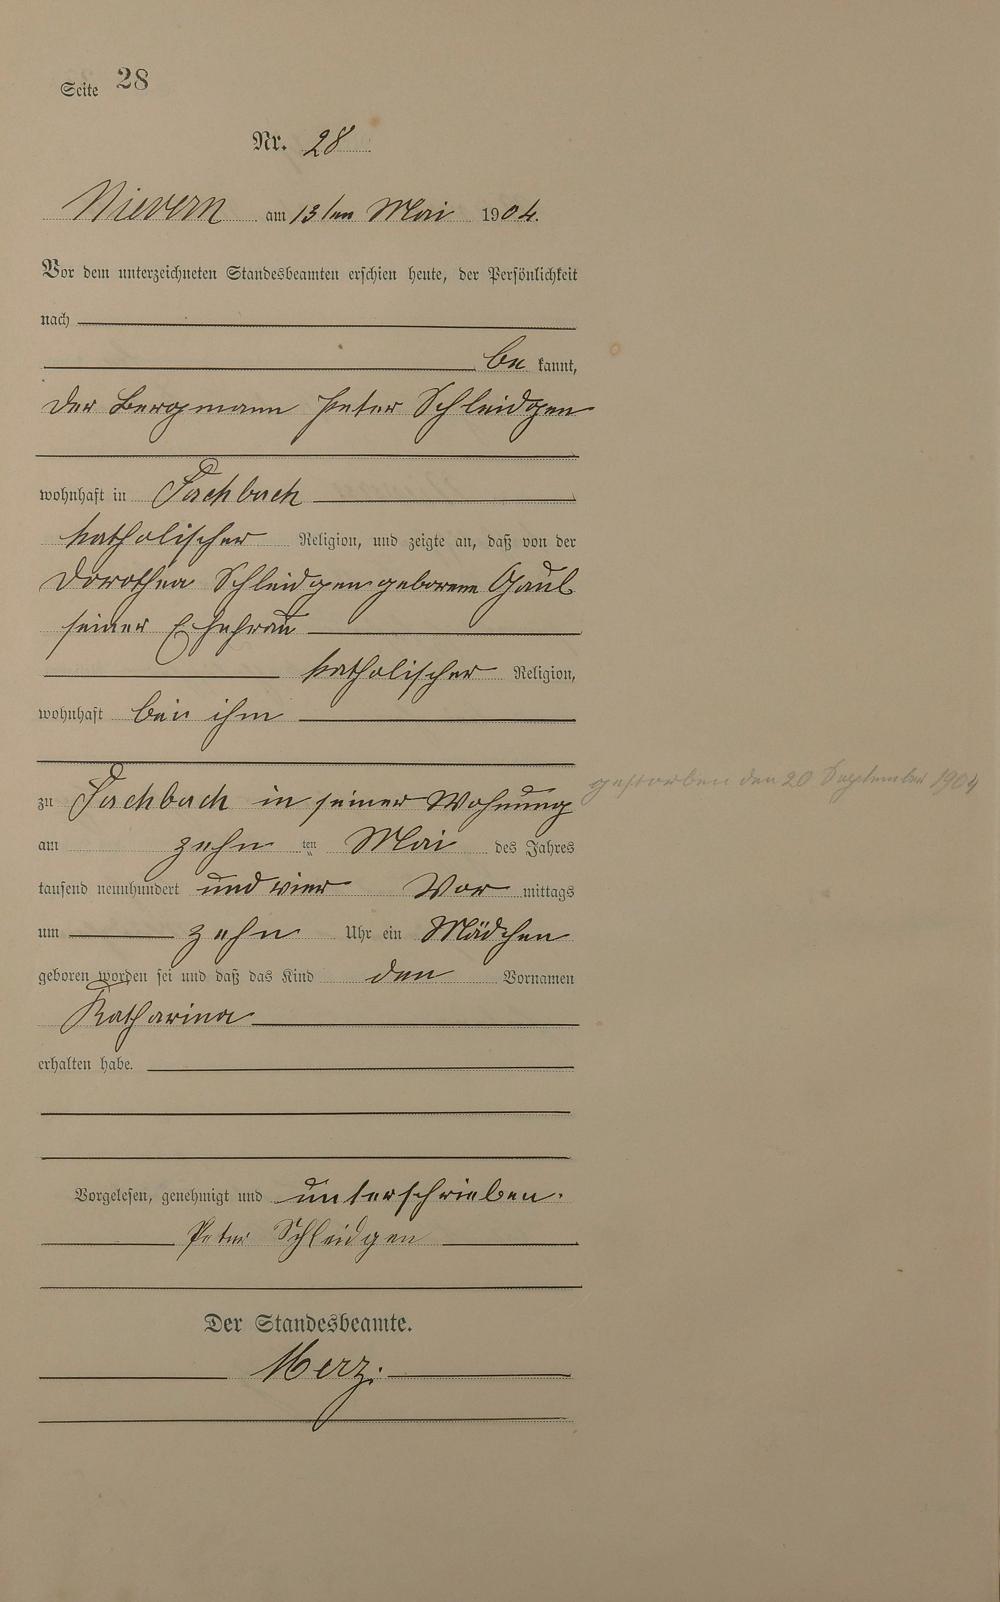 Seite 28
Nr. 28
Nievern am 13ten Mai 1904.
Vor dem unterzeichneten Standesbeamten erschien heute, der Persönlichkeit
nach
be kannt,
der Bergmann Peter Schleidgen
wohnhaft in Fachbach
katholischer Religion, und zeigte an, daß von der
Dorothea Schleidgen geborene Gaul
seiner Ehefrau
katholischer Religion,
wohnhaft bei ihm
zu Fachbach in seiner Wohnung
gestorben den 20 September 1904
am zehn ten Mai des Jahres
tausend neunhundert und vier Vor mittags
um zehn Uhr ein Mädchen
geboren worden sei und daß das Kind den Vornamen
Katharina
erhalten habe.
Vorgelesen, genehmigt und unterschrieben.
Peter Schleidgen
Der Standesbeamte.
Merz.